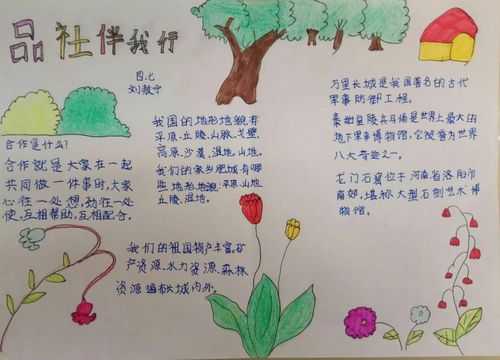 品社伴我行
四.七
刘敬宁
合作是什么?
合作就是大家在一起
共同做一件事时,大家
心往一处想,劲往一处
使,互相帮助,互相配合。
我国的地形地貌有
平原、丘陵、山脉、戈壁、
高原、沙漠、湿地、山地。
我们的家乡肥城有哪
些地形地貌:平原、山地、
丘陵、湿地。
万里长城是我国著名的古代
军事防御工程。
秦始皇陵兵马俑是世界上最大的
地下军事博物馆,它被誉为世界
八大奇迹之一。
龙门石窟位于河南省洛阳市
南郊,堪称大型石刻艺术博
物馆。
我们的祖国物产丰富,矿
产资源、水力资源、森林
资源遍布长城内外。